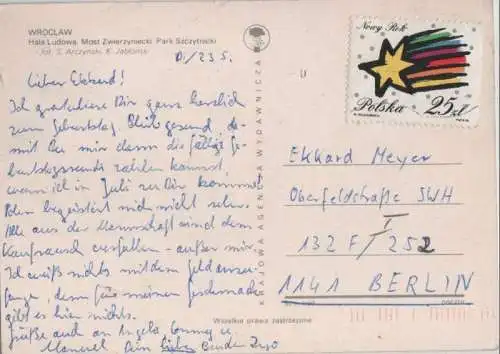 WROCŁAW
Hala Ludowa. Most Zwierzyniecki. Park Szczytnicki
fot. S. Arczyński, K. Jabłoński
Lieber Ekkard!
Ich gratuliere Dir ganz herzlich
zum Geburtstag. Bleib gesund, da-
mit Du mir dann die fällige Ge-
burtstagsrunde zahlen kannst,
wenn ich im Juli zu Dir komme.
Polen begeistert mich nicht sehr.
Alle aus der Mannschaft sind dem
Kaufrausch verfallen - außer mir.
Ich weiß nichts mit dem Geld anzu-
fangen, denn für meinen Geschmack
gibt es hier nichts.
Grüße auch an Angela, Conny u.
Manuel. Dein lieber Bruder Ingo
KRAJOWA AGENCJA WYDAWNICZA
Wszelkie prawa zastrzeżone
Nowy Rok
Polska 25zł
Ekkard Meyer
Oberfeldstraße SWH
132 F / 252
1141 BERLIN